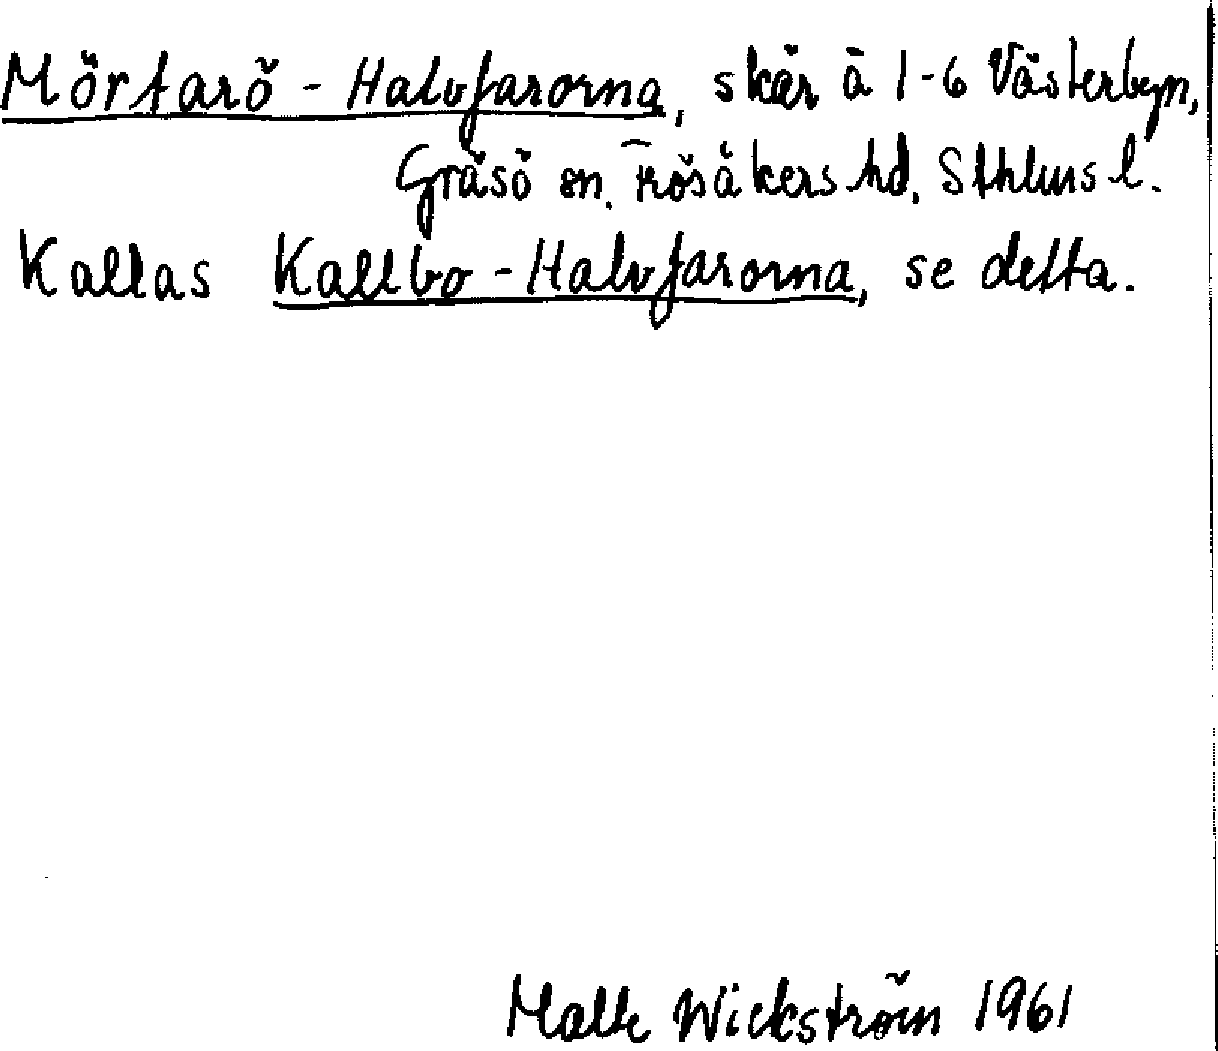 Mörtarö - Halvfarorna, skär å 1-6 Västerbyn,
Gräsö sn. Frösåkers hd, Sthlms l.
Kallas Kallbo - Halvfarorna, se detta.
Malte Wickström 1961